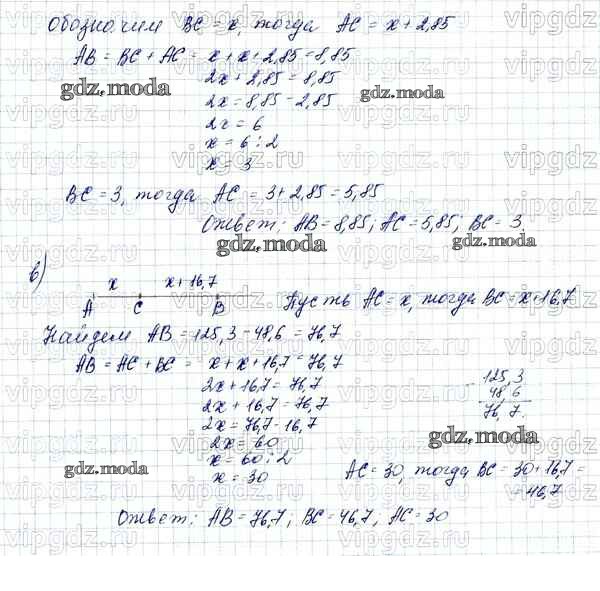 Обозначим BC = x, тогда AC = x + 2,85
AB = BC + AC = x + x + 2,85 = 8,85
2x + 2,85 = 8,85
gdz.moda
gdz.moda
2x = 8,85 - 2,85
2x = 6
x = 6 : 2
x = 3
BC = 3, тогда AC = 3 + 2,85 = 5,85
Ответ: AB = 8,85; AC = 5,85; BC = 3
gdz.moda
в)
x x + 16,7
A C B
Пусть AC = x, тогда BC = x + 16,7
Найдем AB = 125,3 - 48,6 = 76,7
AB = AC + BC = x + x + 16,7 = 76,7
2x + 16,7 = 76,7
2x + 16,7 = 76,7
2x = 76,7 - 16,7
2x = 60
x = 60 : 2
x = 30
- 125,3
48,6
76,7
gdz.moda
gdz.moda
AC = 30, тогда BC = 30 + 16,7 =
= 46,7
Ответ: AB = 76,7; BC = 46,7; AC = 30
vipgdz.ru